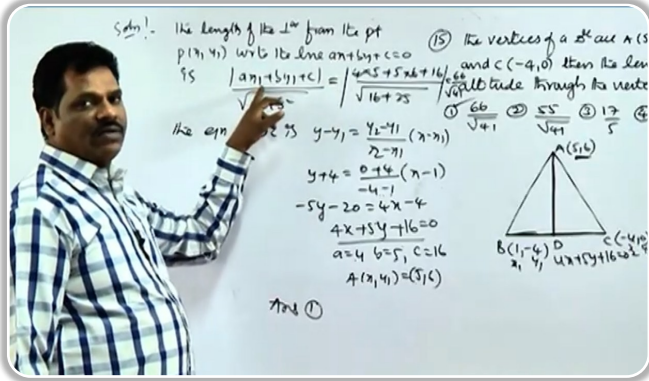 Soln!- The length of the ⊥ar from the pt
P(x₁ y₁) w.r.to the line ax+by+c=0
is |ax₁+by₁+c| / √ = |4×5+5×6+16| / √16+25 = 66/√41
the eqn is y-y₁ = y₂-y₁/x₂-x₁ (x-x₁)
y+4 = 0+4/-4-1 (x-1)
-5y-20=4x-4
4x+5y+16=0
a=4 b=5, c=16
A(x₁,y₁)=(5,6)
Ans ①
⑮ the vertices of a Δle are A(5
and C(-4,0) then the len
altitude through the verte
① 66/√41 ② 55/√41 ③ 17/5 ④
A(5,6)
B(1,-4) D C(-4,0
x₁ y₁ 4x+5y+16=0